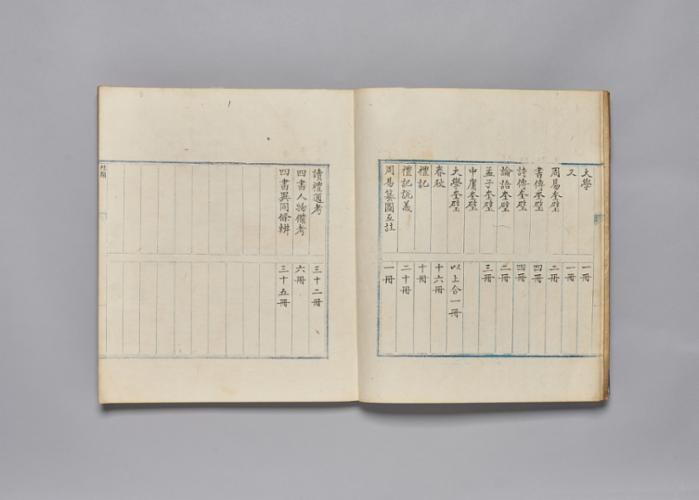 大學 一冊
又 一冊
周易奎壁 二冊
書傳奎壁 四冊
詩傳奎壁 四冊
論語奎壁 二冊
孟子奎壁 三冊
中庸奎壁
大學奎壁 以上合一冊
春秋 十六冊
禮記 十冊
禮記說義 二十冊
周易纂圖互註 一冊
讀禮通考 三十二冊
四書人物備考 六冊
四書異同條辨 三十五冊